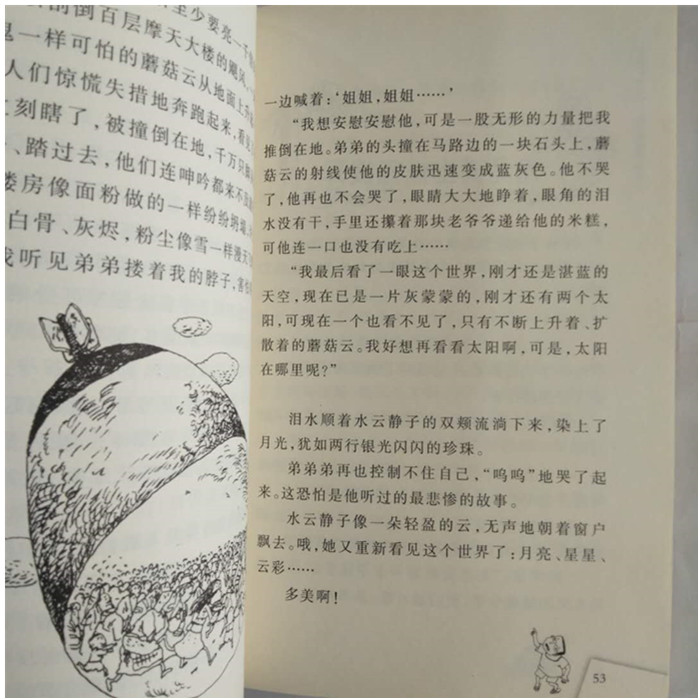 至少要亮一千
倒百层摩天大楼的飓风
一样可怕的蘑菇云从地面上升
人们惊慌失措地奔跑起来,看
刻瞎了,被撞倒在地,千万只
、踏过去,他们连呻吟都来不
楼房像面粉做的一样纷纷坍塌
白骨、灰烬,粉尘像雪一样漫天
我听见弟弟搂着我的脖子,害怕
一边喊着:‘姐姐,姐姐……’
“我想安慰安慰他,可是一股无形的力量把我
推倒在地。弟弟的头撞在马路边的一块石头上,蘑
菇云的射线使他的皮肤迅速变成蓝灰色。他不哭
了,他再也不会哭了,眼睛大大地睁着,眼角的泪
水没有干,手里还攥着那块老爷爷递给他的米糕,
可他连一口也没有吃上……
“我最后看了一眼这个世界,刚才还是湛蓝的
天空,现在已是一片灰蒙蒙的,刚才还有两个太
阳,可现在一个也看不见了,只有不断上升着、扩
散着的蘑菇云。我好想再看看太阳啊,可是,太阳
在哪里呢?”
泪水顺着水云静子的双颊流淌下来,染上了
月光,犹如两行银光闪闪的珍珠。
弟弟弟再也控制不住自己,“呜呜”地哭了起
来。这恐怕是他听过的最悲惨的故事。
水云静子像一朵轻盈的云,无声地朝着窗户
飘去。哦,她又重新看见这个世界了:月亮、星星、
云彩……
多美啊!
53